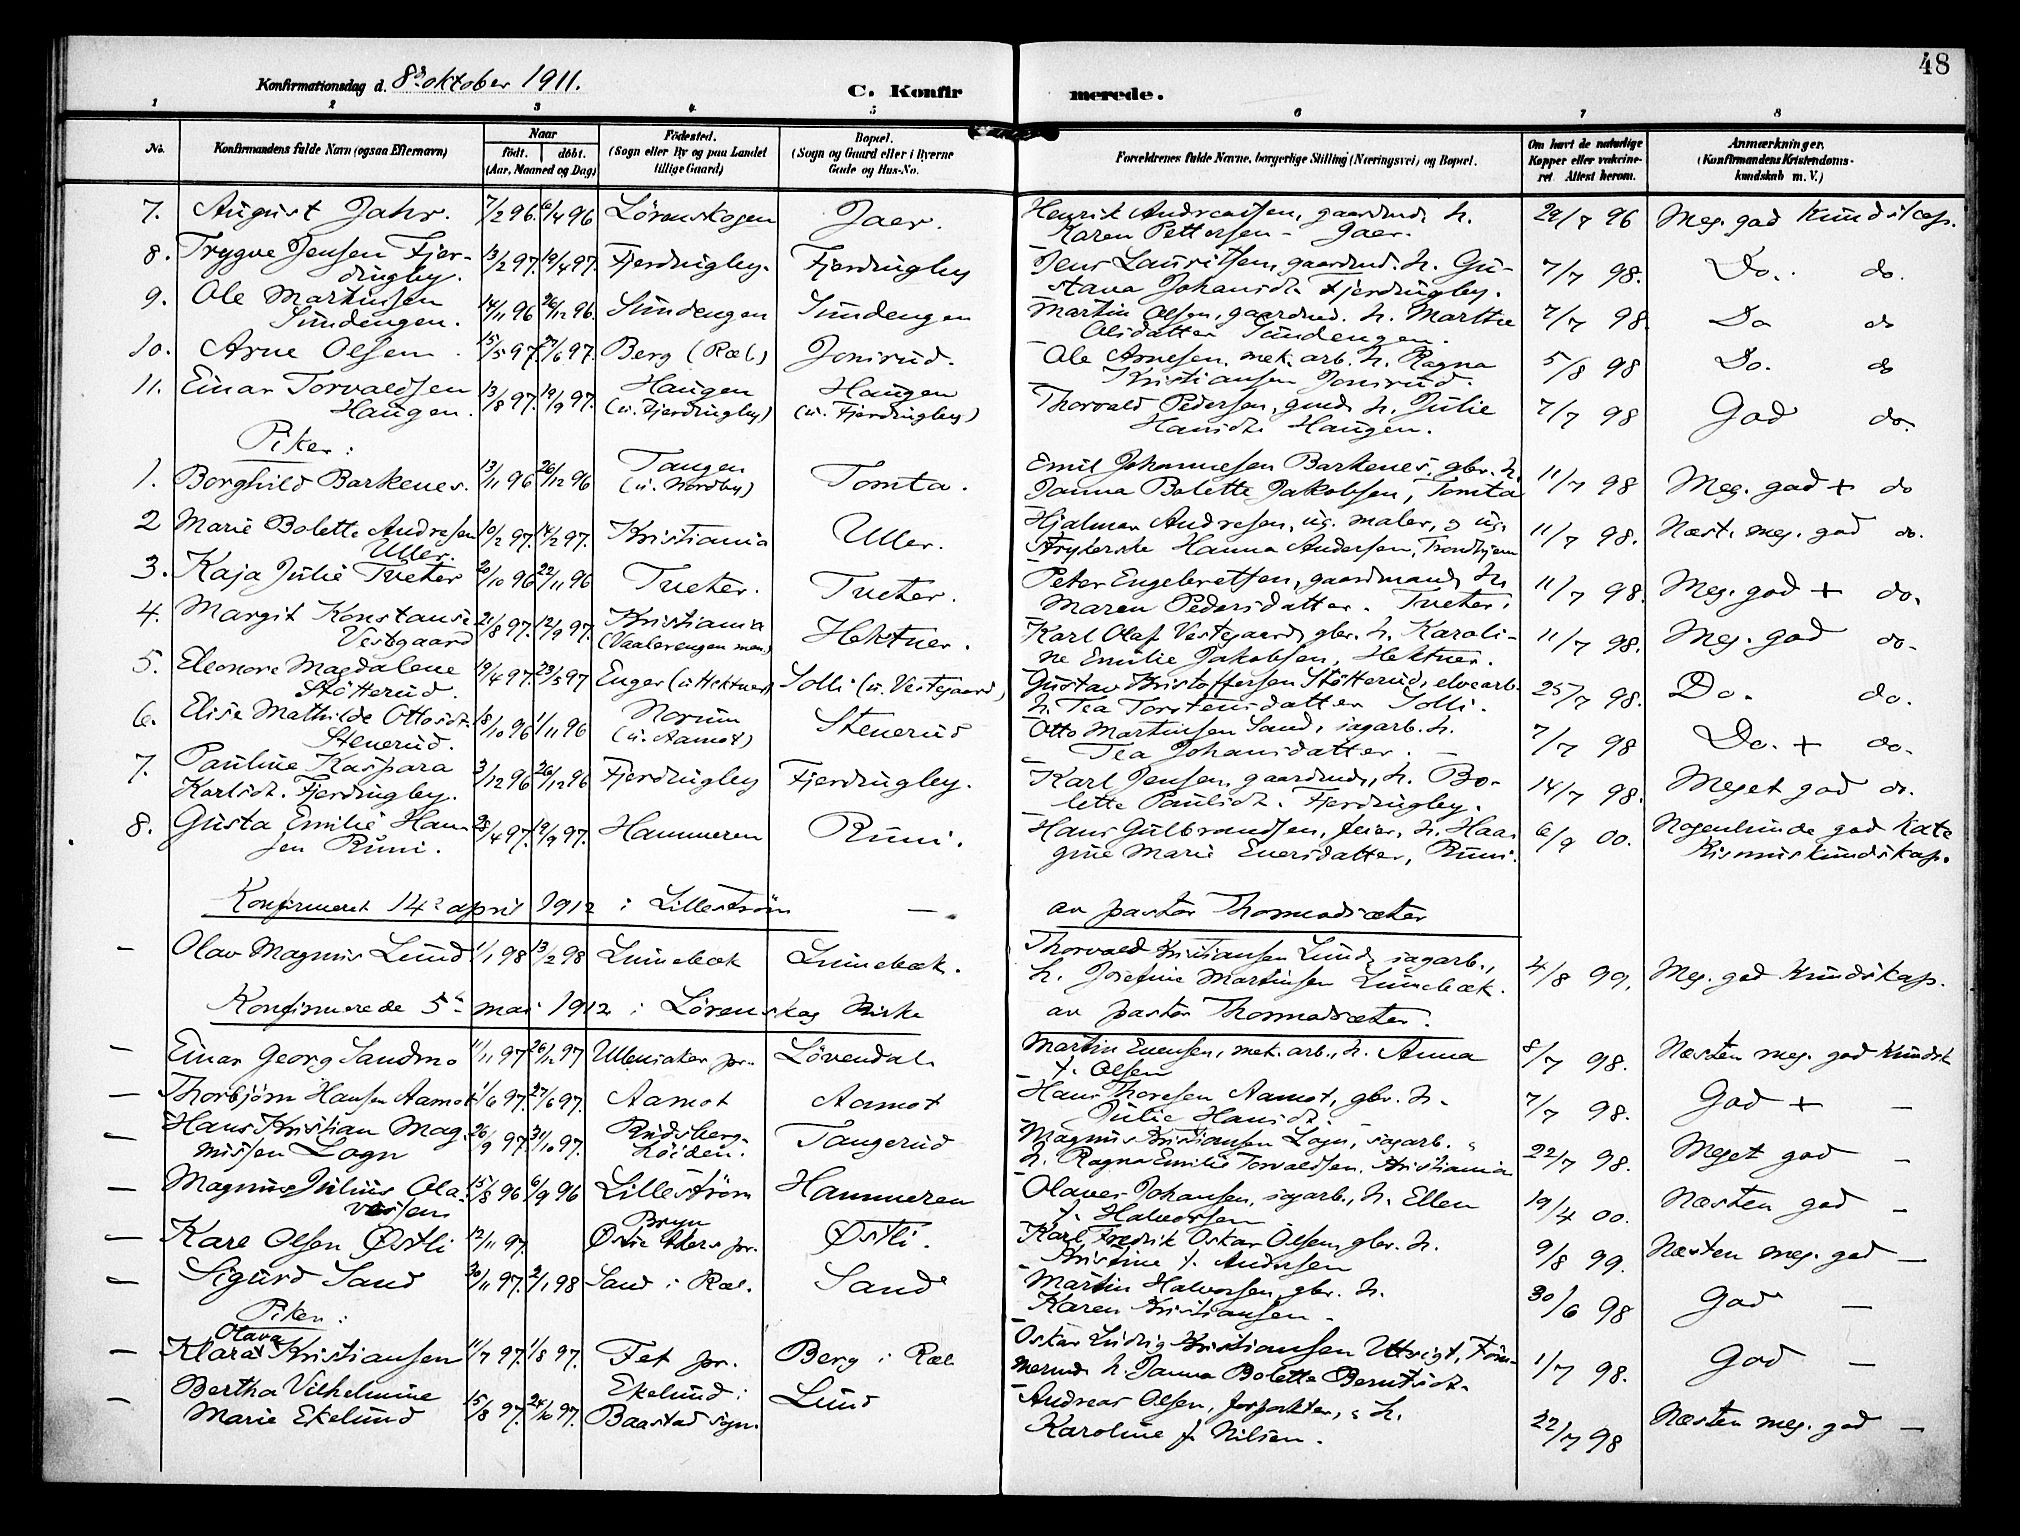 48
Konfirmationsdag d. 8de oktober 1911. C. Konfirmerede.
1 2 3 4 5 6 7 8
No. Konfirmandens fulde Navn (ogsaa Efternavn) Naar født. døbt. (Aar, Maaned og Dag) Fødested. (Sogn eller By og paa Landet tillige Gaard) Bopæl. (Sogn og Gaard eller i Byerne Gade og Hus-No. Forældrenes fulde Navne, borgerlige Stilling (Næringsvei) og Bopæl. Om havt de naturlige Kopper eller vakcineret Attest herom. Anmærkninger. (Konfirmandens Kristendomskundskab m. V.)
7. August Jahr. 7/2 96 6/4 96 Lørenskogen Jaer. Henrik Andreassen, gaardmd. h. Meg. god Kundskap.
Karen Pettersen - Jaer. 29/7 96
8. Trygve Jensen Fjer- 13/2 97. 19/4 97. Fjerdingby. Fjerdingby Jens Lauritsen, gaardmd. h. Gu- 7/7 98. Do. do.
dingby. stava Johansdt. Fjerdingby.
9. Ole Martinsen 14/11 96 26/12 96. Sundengen Sundengen Martin Olsen, gaardmd. h. Marthe 7/7 98 Do do
Sundengen. Olsdatter Sundengen.
10. Arne Olsen 15/5 97. 27/6 97. Berg (Ræl.) Jonsrud. Ole Arnesen, mek. arb. h. Ragna 5/8 98 Do. do
Kristiansen Jonsrud.
11. Einar Torvaldsen 13/8 97. 19/9 97. Haugen Haugen Thorvald Pedersen, gmd. h. Julie 7/7 98 God do.
Haugen. (u. Fjerdingby) (u. Fjerdingby) Hansdt. Haugen.
Piker:
1. Borghild Barkenes. 13/11 96 26/12 96 Tangen Tomta. Emil Johannesen Barkenes, gbr. h. 11/7 98 Meg. god + do
(u. Nordby) Janna Bolette Jakobsen, Tomta
2 Marie Bolette Andresen 10/2 97. 14/2 97. Kristiania Uller. Hjalmar Andresen, ug. maler, og ug. 11/7 98. Næst. meg. god do.
Uller. Strykerske Hanna Andersen, Trondhjem
3. Kaja Julie Tveter 20/10 96 22/11 96 Tveter. Tveter. Peter Engebretsen, gaardmand, h. 11/7 98. Meg. god + do.
Maren Pedersdatter. Tveter.
4. Margit Konstanse 21/8 97. 12/9 97. Kristiania Hektner. Karl Olaf Vestgaard, gbr. h. Karoli- 11/7 98. Meg. god do.
Vestgaard (Vaalerengen men.) ne Emilie Jakobsen, Hektner.
5. Eleonore Magdalene 19/4 97. 23/5 97 Enger (u. Hektner) Solli (u. Vestgaard) Gustav Kristoffersen Støtterud, elvearb. 25/7 98. Do. do.
Støtterud. h. Tea Torstensdatter Solli.
6. Elise Mathilde Ottosdt. 18/10 96 1/11 96 Norum Stenerud Otto Martinsen Sand, sagarb. h. 7/7 98 Do. + do.
Stenerud. (u. Aamot) Tea Johansdatter. -
7. Pauline Kaspara 3/12 96 26/12 96 Fjerdingby Fjerdingby. Karl Jensen, gaardmd., h. Bo- 14/7 98. Meget god do.
Karlsdt. Fjerdingby. lette Paulsdt. Fjerdingby.
8. Gusta Emilie Han- 28/4 97. 19/9 97. Hammeren Runi. Hans Gulbrandsen, feier, h. Haa- 6/9 00. Nogenlunde god Kate
sen Runi. gine Marie Eversdatter, Runi. kismuskundskap.
Konfirmeret 14de april 1912 i Lillestrøm — av pastor Thormodsæter
— Olav Magnus Lund 1/1 98 13/2 98 Lunebæk Lunebæk. Thorvald Kristiansen Lund, sagarb., 4/8 99. Meg. god Kundskap.
h. Josefine Martinsen Lunebæk.
Konfirmerede 5te mai 1912 i Lørenskog Kirke av pastor Thormodsæter.
— Einar Georg Sandmo 11/11 97 26/12 97 Ullensaker pr. Løvendal. Martin Evensen, mek. arb., h. Anna 8/7 98. Næsten meg. god Kundsk
f. Olsen
— Thorbjørn Hansen Aamot 1/6 97. 27/6 97. Aamot Aamot Hans Thoresen Aamot, gbr. h. 7/7 98. God + —
Julie Hansdt. -
— Hans Kristian Mag- 26/9 97. 31/10 97. Rudsberg- Tangerud Magnus Kristiansen Logn, sagarb. 22/7 98. Meget god —
nussen Logn Koiden. h. Ragna Emilie Torvaldsen. Kristiania
— Magnus Julius Ola- 15/8 96 6/9 96 Lillestrøm Hammeren Olaves Johansen, sagarb., h. Ellen 19/4 00. Næsten god —
vessen f. Halvorsen
— Kare Olsen Østli 12/11 97. Bryn Østre Akers pr. Østli. Karl Fredrik Oskar Olsen, gbr. h. 9/8 99. Næsten meg. god —
Kristine f. Andersen
— Sigurd Sand 30/11 97. 2/1 98 Sand i Ræl. Sand Martin Halvorsen, gbr. h. 30/6 98 God —
Karen Kristiansen -
Piker:
Olava
— Klara Kristiansen 11/7 97. 1/8 97. Fet pr. Berg i Ræl Oskar Ludvig Kristiansen Utsigt, Tøm- 1/7 98. God —
mermd. h. Janna Bolette Berntsdt.
— Bertha Vilhelmine 15/8 97. 24/10 97. Ekelund i Lund Andreas Olsen, forpakter, h. 22/7 98 Næsten meg. god —
Marie Ekelund Baastad sogn. Karoline f. Nilsen.